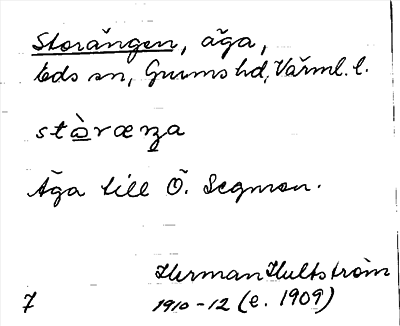 Storängen, äga,
Eds sn, Grums hd, Värml. l.
stàræŋa
Äga till Ö. Segmon.
Herman Hultström
7 1910-12 (e. 1909)